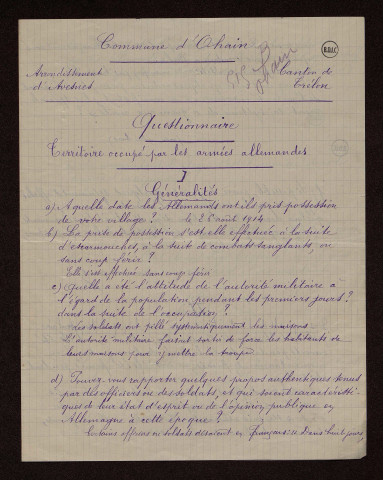 Commune d'Ohain
B.D.I.C
Ohain
Arrondissement
d'Avesnes
Canton de
Trélon
Questionnaire
Territoire occupé par les armées allemandes
I
Généralités
a) A quelle date les Allemands ont-ils pris possession
de votre village ? le 26 août 1914
b) La prise de possession s'est-elle effectuée à la suite
d'escarmouches, à la suite de combats sanglants, ou
sans coup férir ?
Elle s'est effectuée sans coup férir
c) Quelle a été l'attitude de l'autorité militaire à
l'égard de la population pendant les premiers jours ?
dans la suite de l'occupation ?
Les soldats ont pillé systématiquement les maisons.
L'autorité militaire faisait sortir de force les habitants de
leurs maisons pour y mettre la troupe
d) Pouvez-vous rapporter quelques propos authentiques tenus
par des officiers ou des soldats, et qui soient caractéristi-
ques de leur état d'esprit ou de l'opinion publique en
Allemagne à cette époque ?
Certains officiers ou soldats disaient en français : "Dans huit jours,